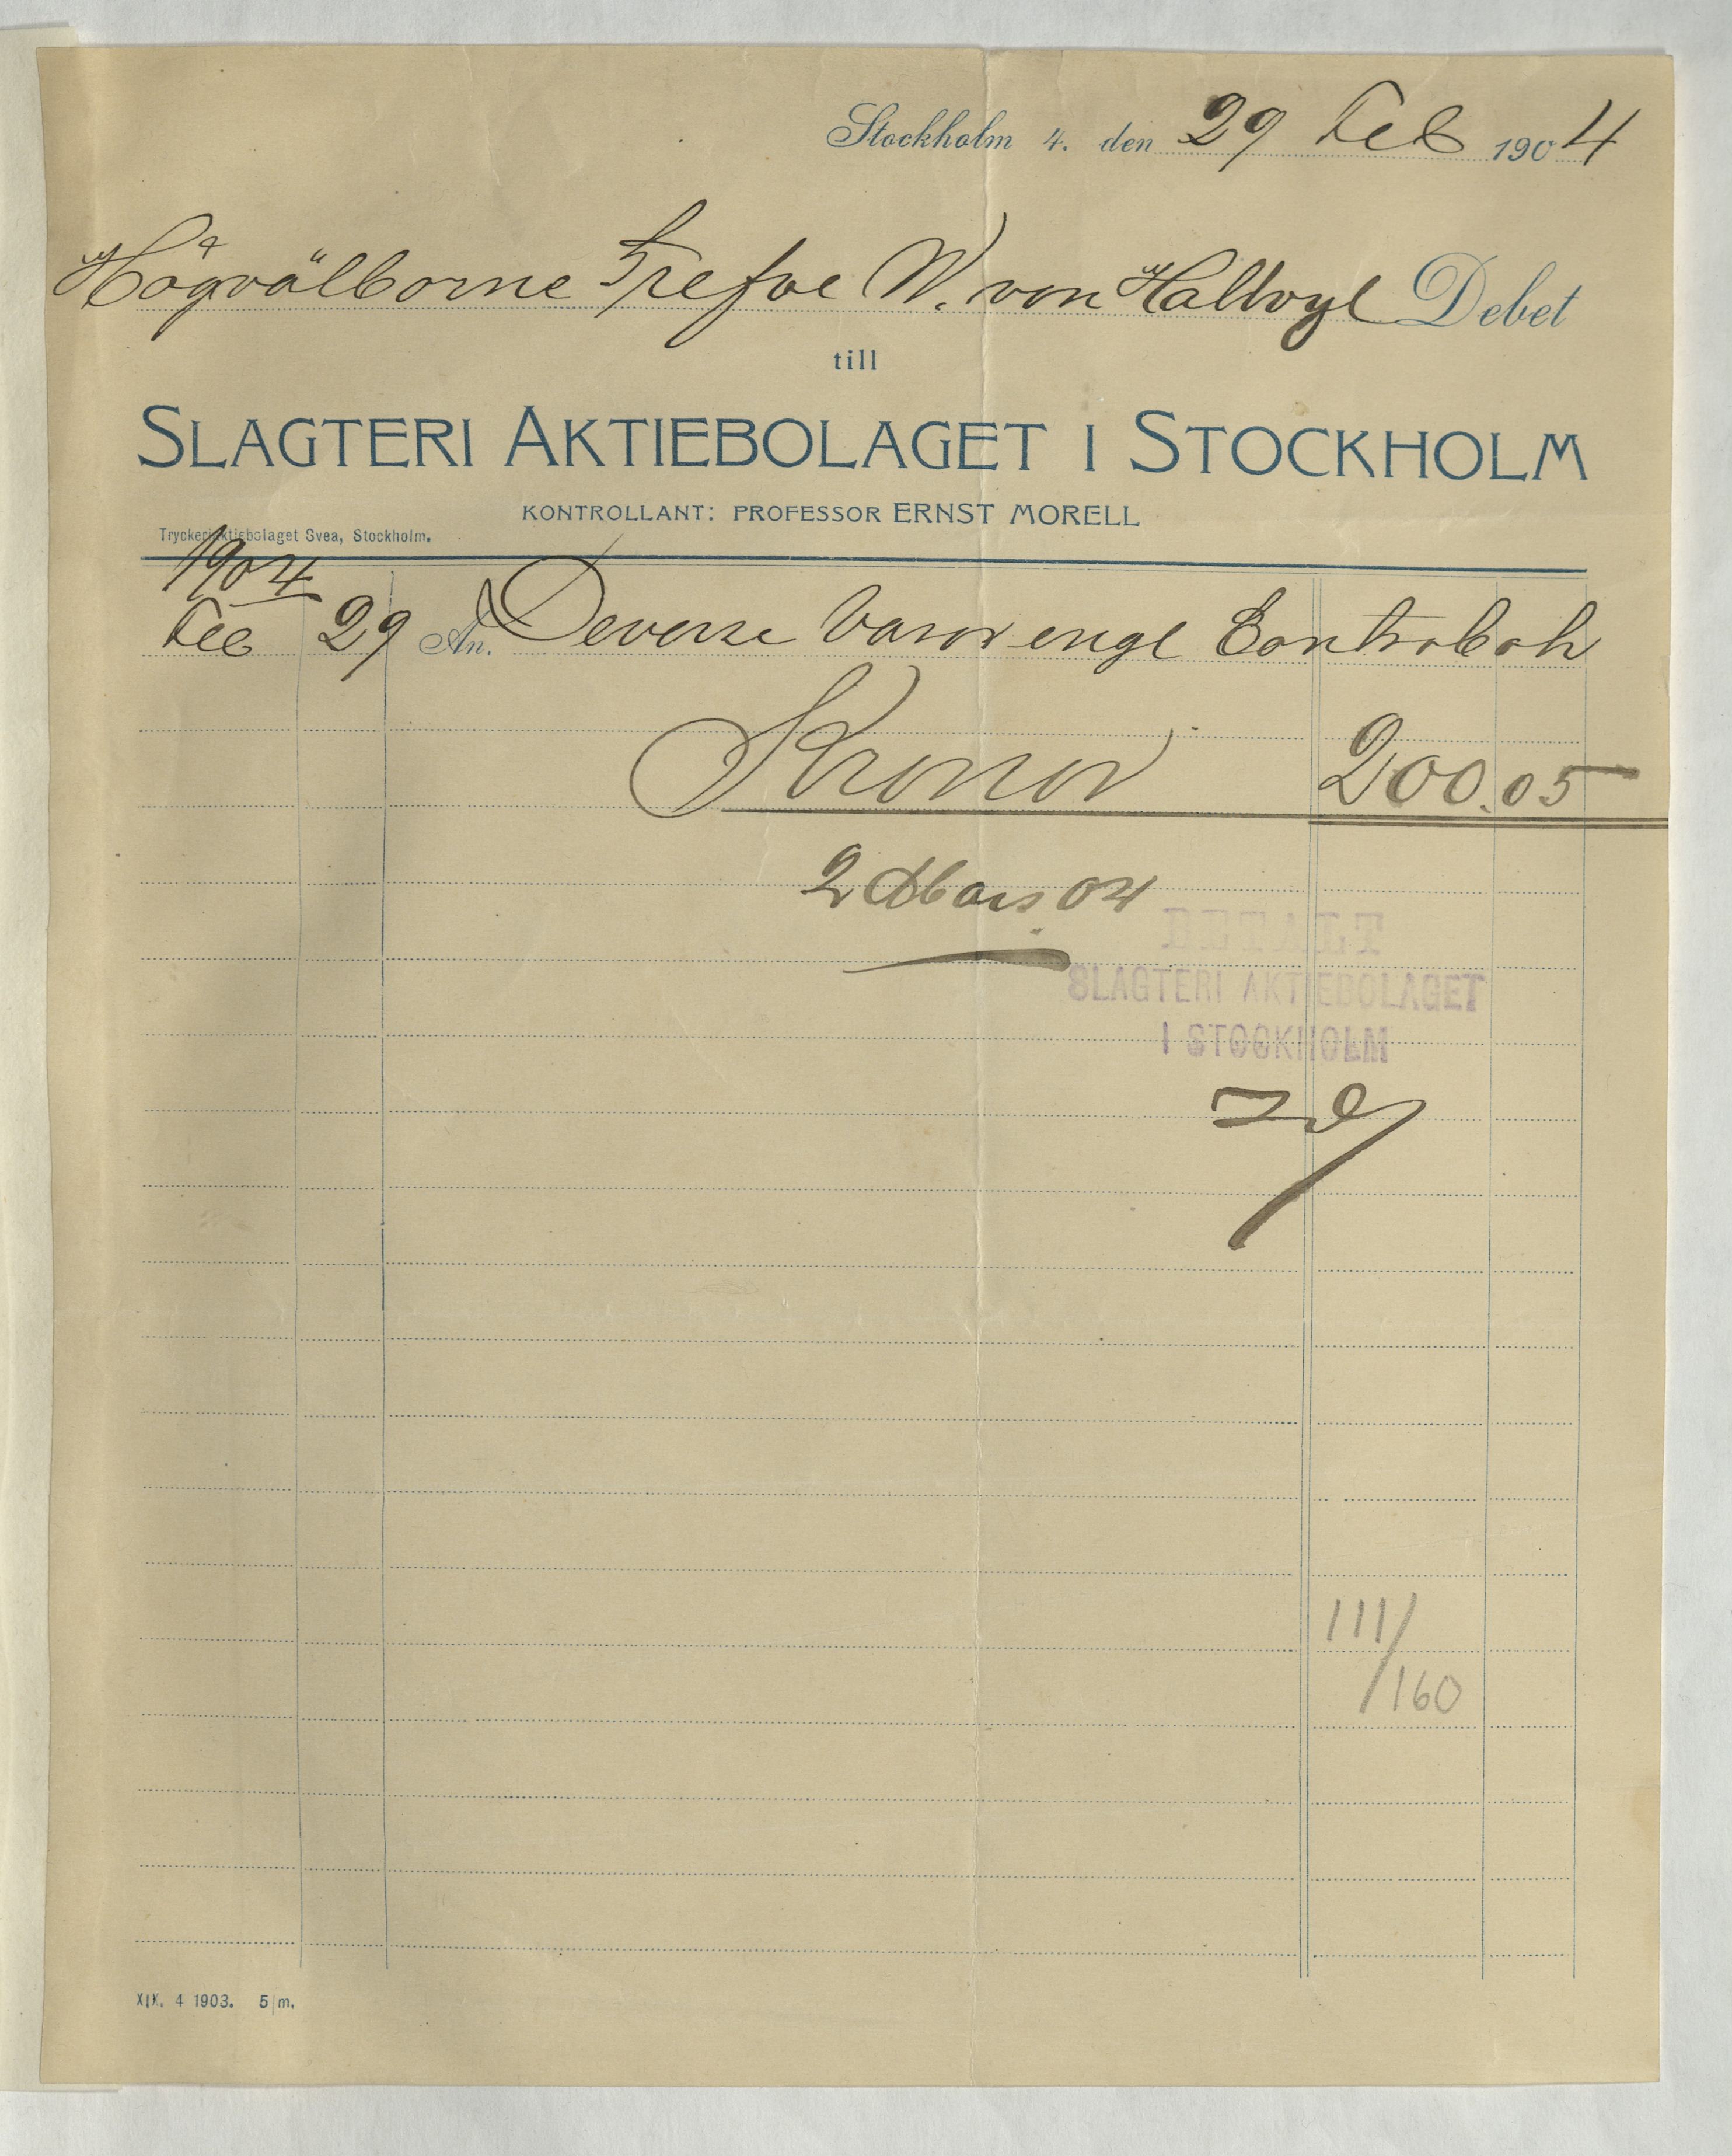 Stockholm 4. den 29 Feb 1904
Högvälborne Grefve W. von Hallwyl Debet
till
SLAGTERI AKTIEBOLAGET I STOCKHOLM
KONTROLLANT: PROFESSOR ERNST MORELL
Tryckeriaktiebolaget Svea, Stockholm.
1904
Feb 29 An. Deverse Varor engl Contrabok
Kronor 200.05
2 Mars 04
BETALT
SLAGTERI AKTIEBOLAGET
I STOCKHOLM
111/160
4 1903. 5 m.